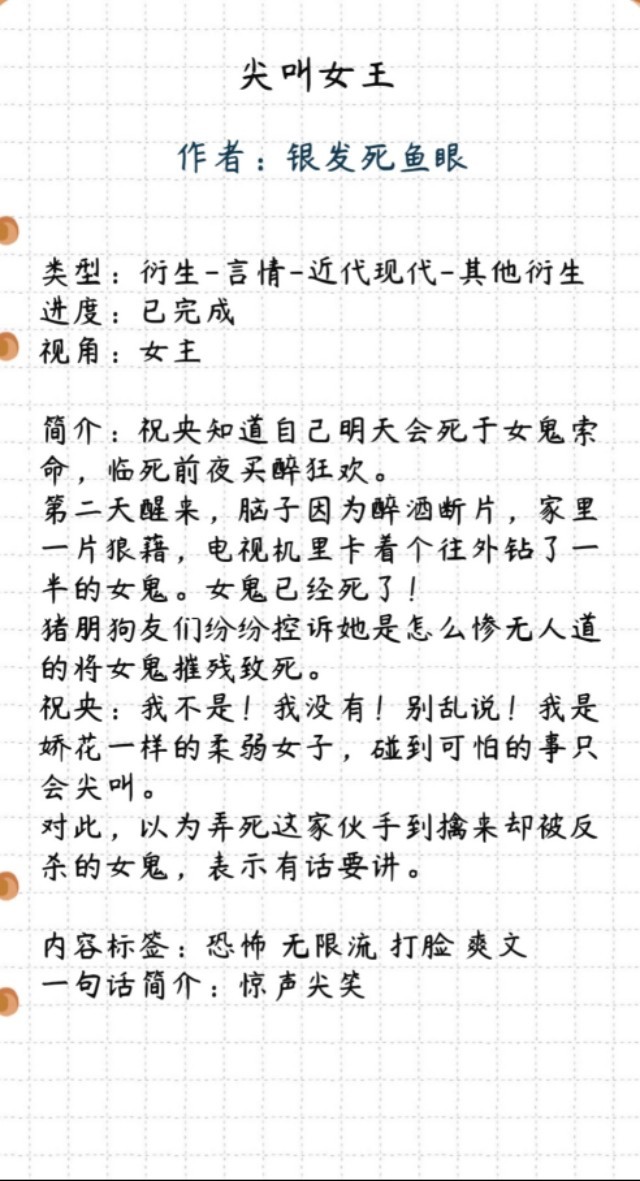 尖叫女王
作者：银发死鱼眼
类型：衍生-言情-近代现代-其他衍生
进度：已完成
视角：女主
简介：祝央知道自己明天会死于女鬼索
命，临死前夜买醉狂欢。
第二天醒来，脑子因为醉酒断片，家里
一片狼藉，电视机里卡着个往外钻了一
半的女鬼。女鬼已经死了！
猪朋狗友们纷纷控诉她是怎么惨无人道
的将女鬼摧残致死。
祝央：我不是！我没有！别乱说！我是
娇花一样的柔弱女子，碰到可怕的事只
会尖叫。
对此，以为弄死这家伙手到擒来却被反
杀的女鬼，表示有话要讲。
内容标签：恐怖 无限流 打脸 爽文
一句话简介：惊声尖笑